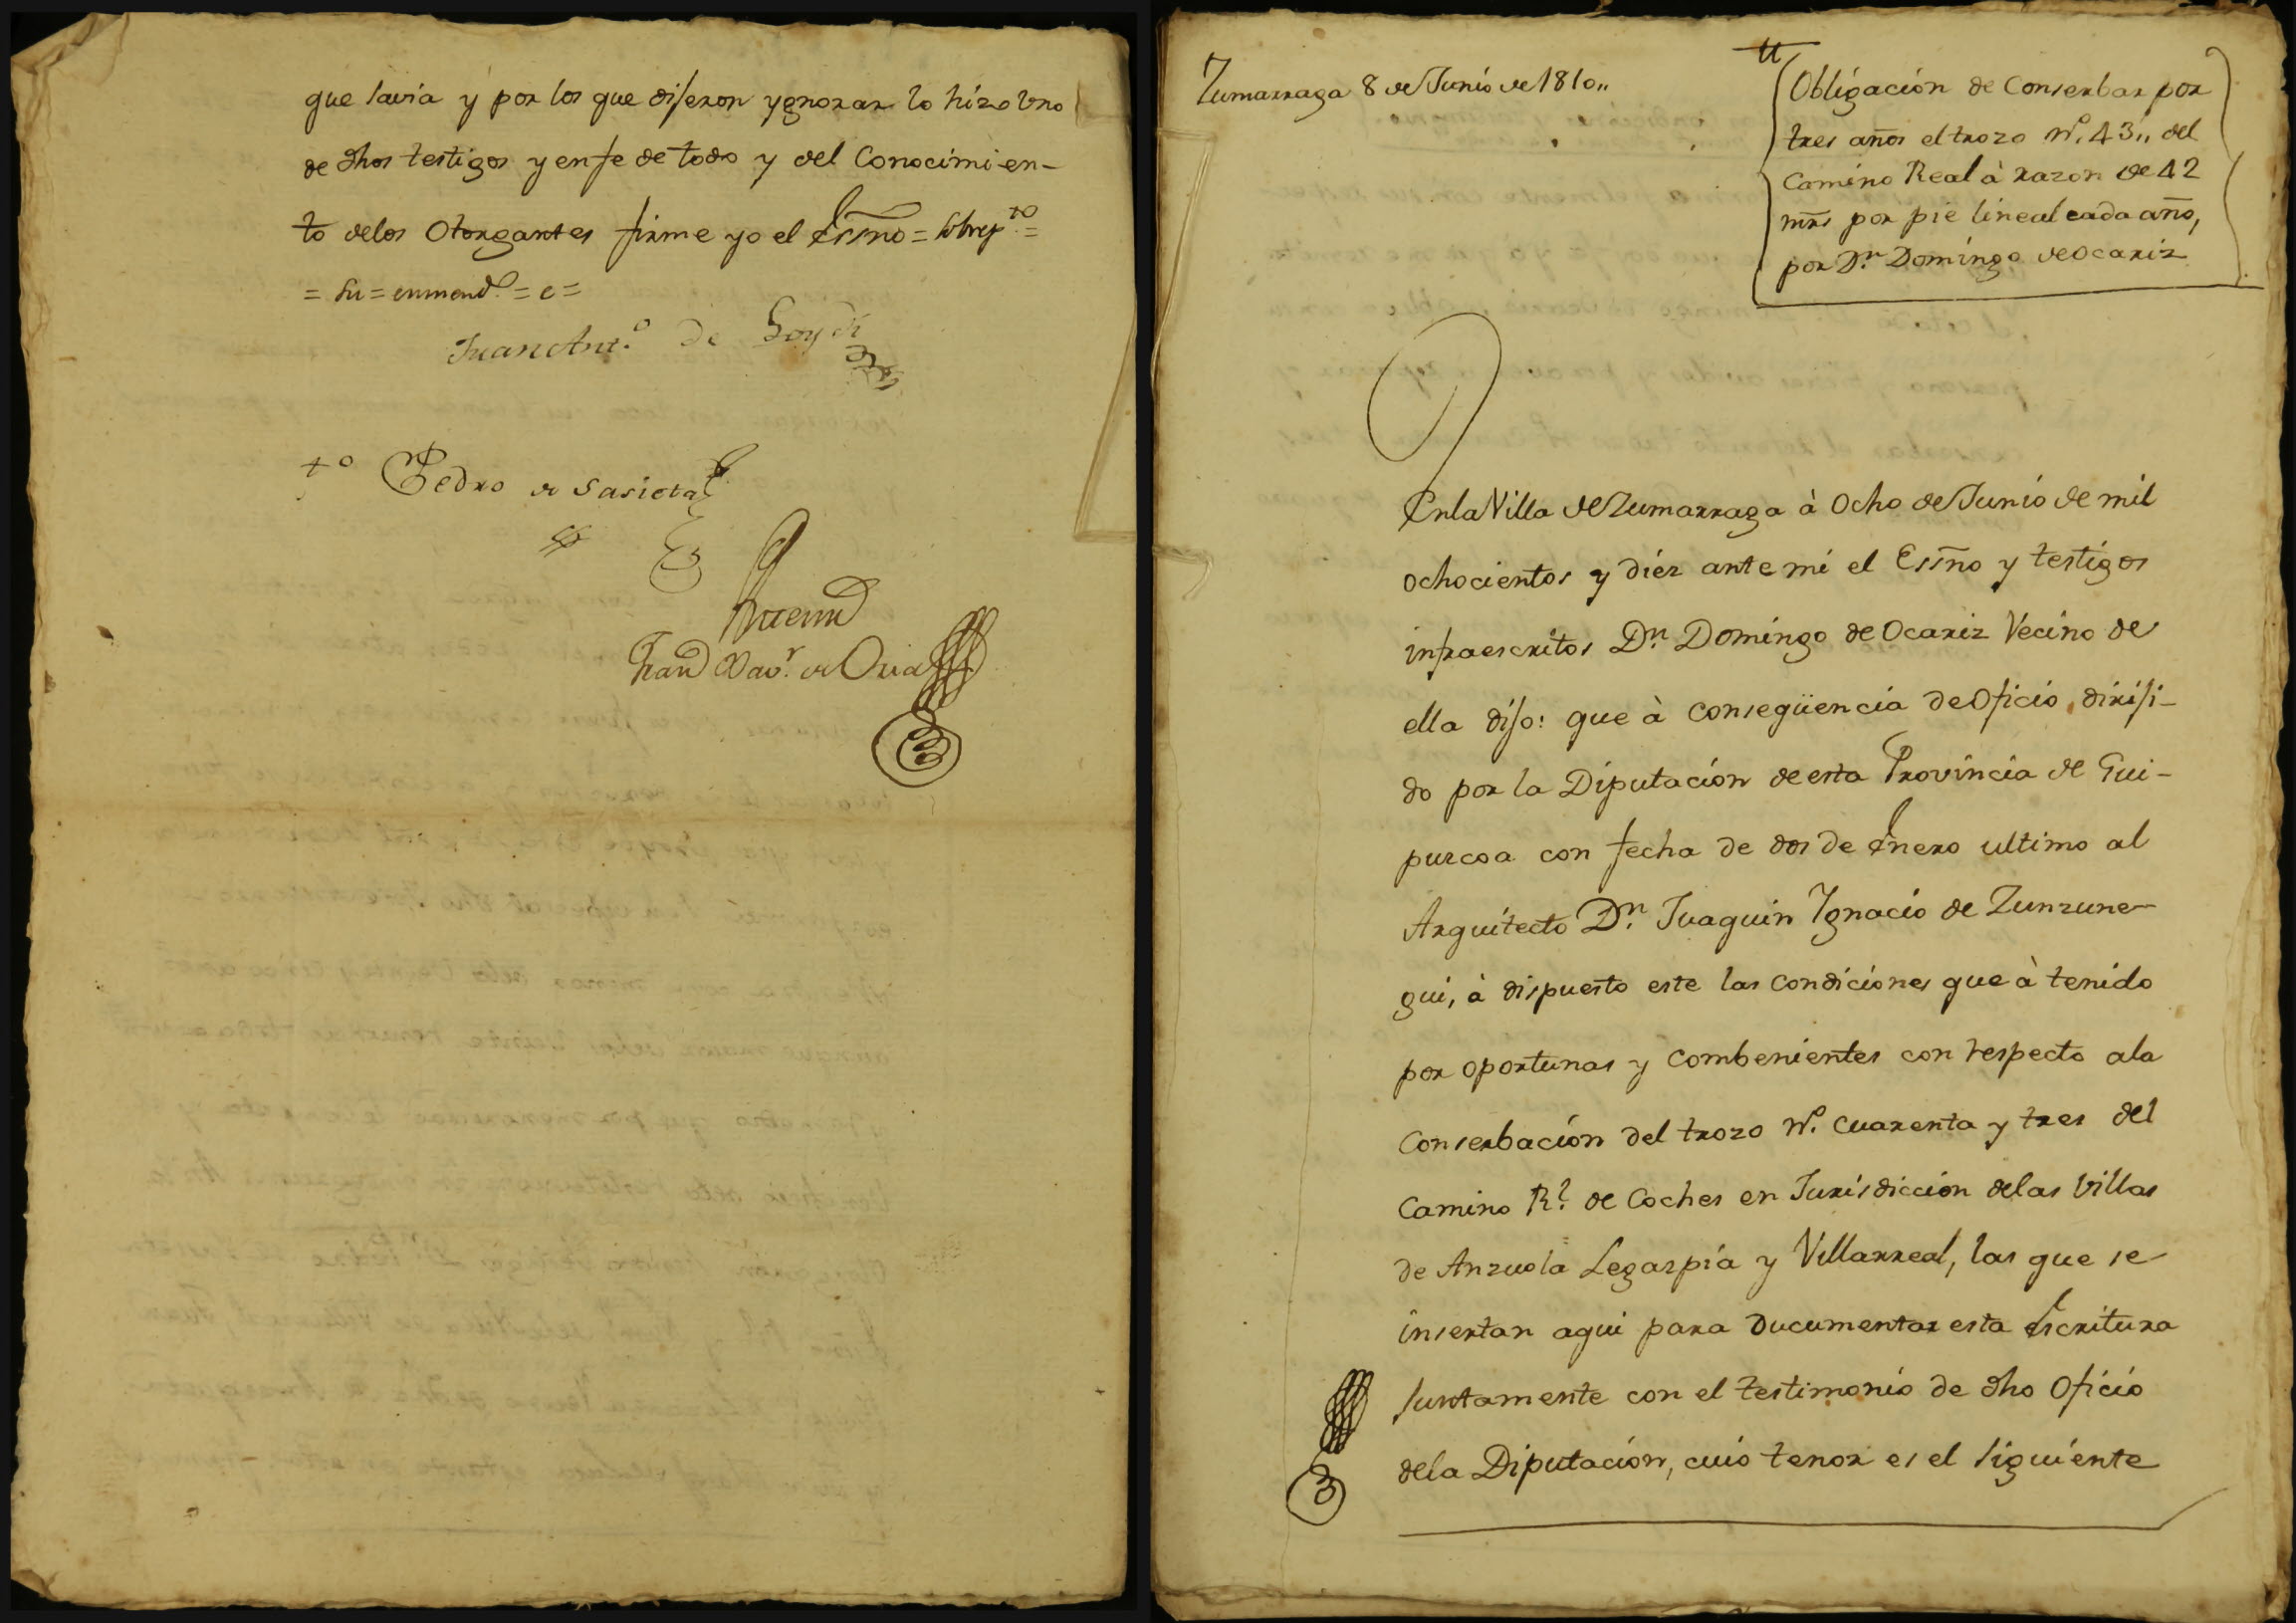 que savia y por los que dijeron ygnorar lo hizo uno
de dhos testigos y en fe de todo y del Conocimien-
to delos Otorgantes firme yo el Essno = Sobrep.to =
= su = enmend.o = e =
Juan Ant.o de Goydi
t.o Pedro de Sasieta
Ante mi
Fran.co Xav.r de Oria
Zumarraga 8 de Junio de 1810,,
Obligación de Conserbar por
tres años el trozo N.o 43,, del
Camino Real à razon de 42
mrs por pie lineal cada año,
por D.n Domingo de Ocariz
En la Villa de Zumarraga à Ocho de Junio de mil
ochocientos y diez ante mi el Essno y testigos
infraescritos D.n Domingo de Ocariz Vecino de
ella dijo: que à conseqüencia de Oficio diriji-
do por la Diputación de esta Provincia de Gui-
puzcoa con fecha de dos de Enero ultimo al
Arquitecto D.n Juaquin Ygnacio de Zunzune-
gui, à dispuesto este las condiciones que à tenido
por oportunas y combenientes con respecto ala
Conserbación del trozo N.o cuarenta y tres del
Camino R.l de Coches en Jurisdicción delas Villas
de Anzuola Legazpia y Villarreal, las que se
insertan aqui para ducumentar esta Escritura
juntamente con el testimonio de dho Oficio
dela Diputación, cuio tenor es el siguiente